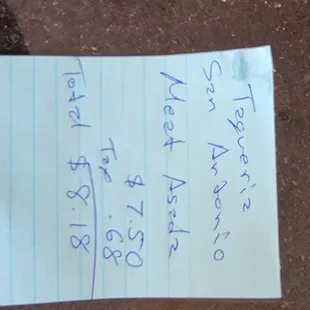 Taqueria
San Antonio
Meat Asada
$7.50
Tax .68
Total $8.18